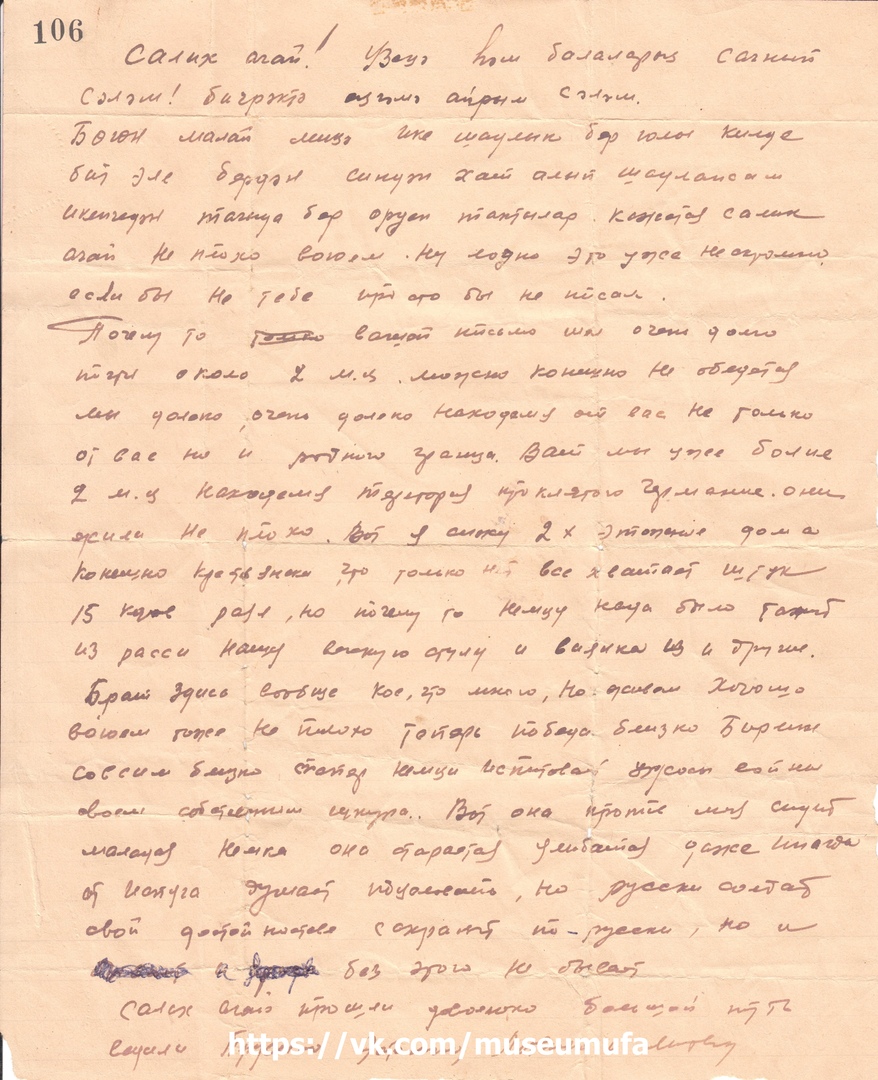 106
Салих агай! Үзеңә һәм балаларың сагный
сәләм! бигрәктә аерым сәләм.
Бөгөн малай миңә ике шаулык бер юлы килде
бит әле бердән синдән хат алып шаулансам
икенчедән тагыда бер орден тактылар. Кажется салих
агай не плохо воюем. Ну лодно это уже нескромно
если бы не тебе просто бы не писал.
Почему то вашой письмо шол очен долго
почти около 2 м.ц. можно конешно не обедется
мы далеко, очень далеко находемя от вас не только
от вас но и родного граница. Вот мы уже более
2 м.ц находемя территория проклятого Германие. они
жили не плохо. Вот я сижу 2х этожние дома
конешно крестянски что только нет все хватает штук
15 раза, но почему то немцу нада было
из расси нашу и и другие.
Брат здись вообще кое, что много, но живем хорошо
воюем тоже не плохо теперь победа близко Берлин
совсим близко немци испитовают ужосы войни
своем собственним шкура.. Вот она против меня сидит
маладая немка она старается улибатся даже иногда
от испуга думает, но русски солдат
свой достойнство сохранит по-русски, но и
и без этого не бывает
Салих агай прошли довольно большой путь
https://vk.com/museumufa